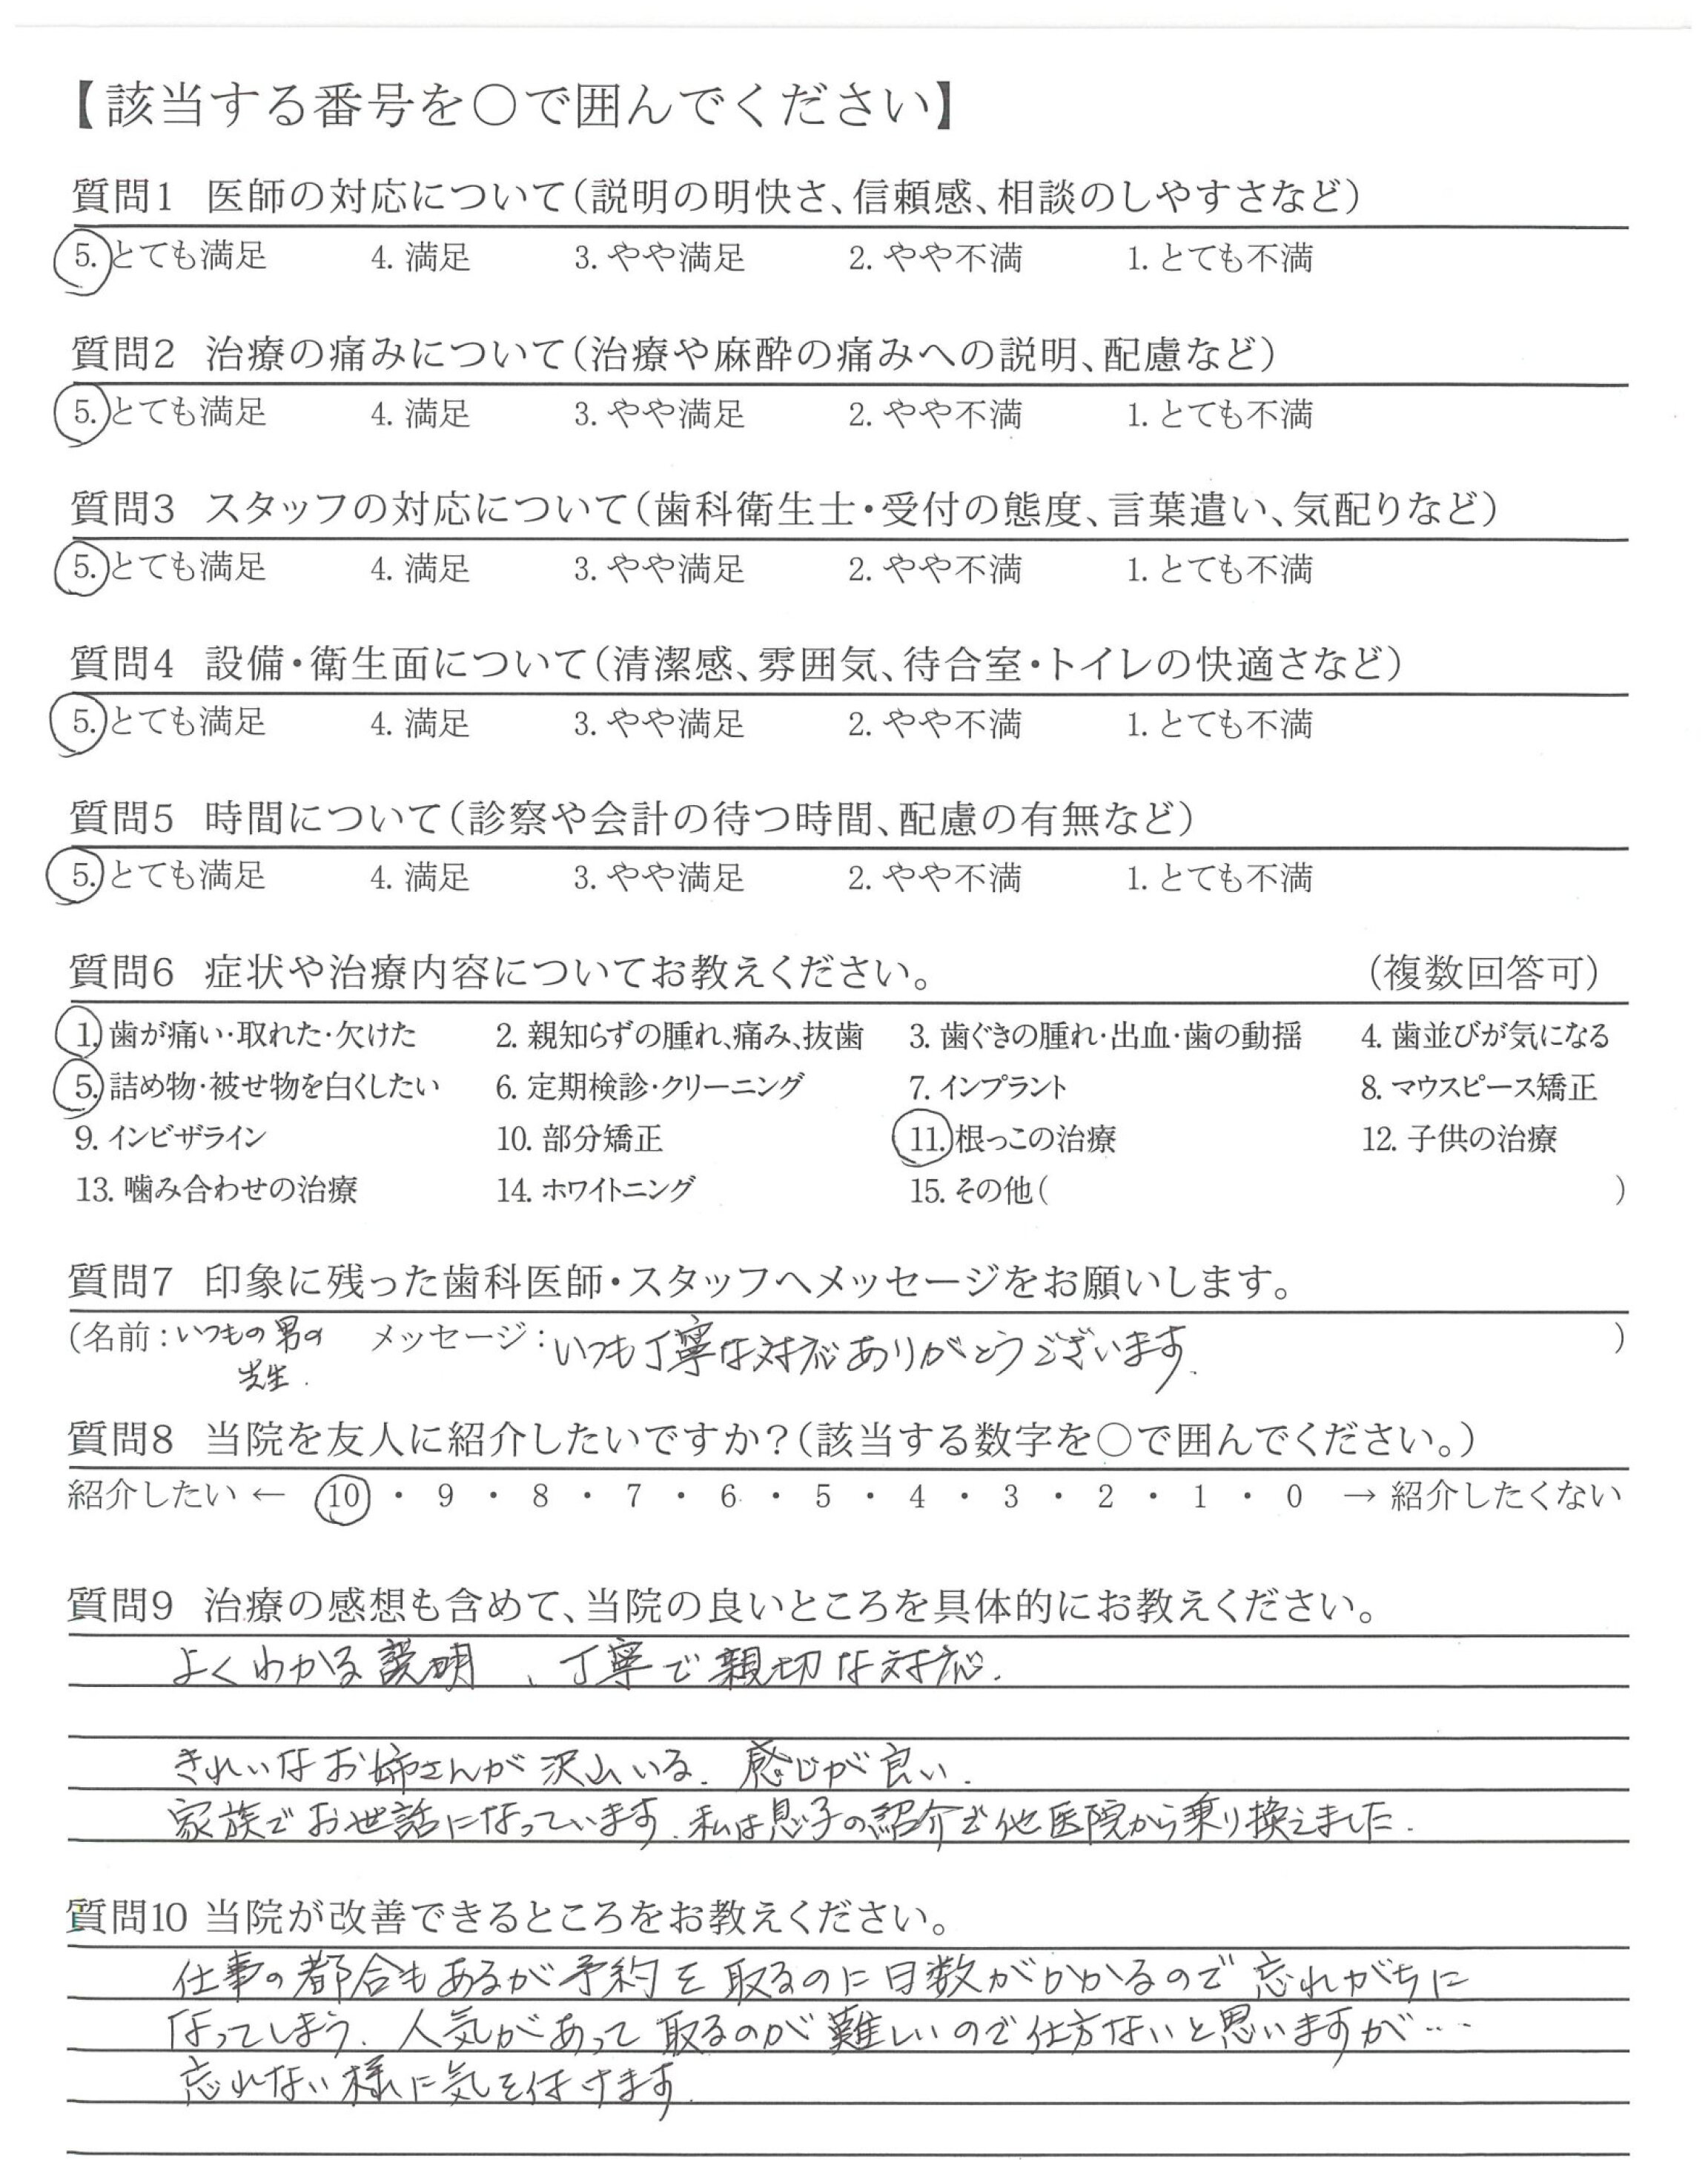 【該当する番号を○で囲んでください】
質問1 医師の対応について（説明の明快さ、信頼感、相談のしやすさなど）
5. とても満足 4. 満足 3. やや満足 2. やや不満 1. とても不満
質問2 治療の痛みについて（治療や麻酔の痛みへの説明、配慮など）
5. とても満足 4. 満足 3. やや満足 2. やや不満 1. とても不満
質問3 スタッフの対応について（歯科衛生士・受付の態度、言葉遣い、気配りなど）
5. とても満足 4. 満足 3. やや満足 2. やや不満 1. とても不満
質問4 設備・衛生面について（清潔感、雰囲気、待合室・トイレの快適さなど）
5. とても満足 4. 満足 3. やや満足 2. やや不満 1. とても不満
質問5 時間について（診察や会計の待つ時間、配慮の有無など）
5. とても満足 4. 満足 3. やや満足 2. やや不満 1. とても不満
質問6 症状や治療内容についてお教えください。 （複数回答可）
1. 歯が痛い・取れた・欠けた 2. 親知らずの腫れ、痛み、抜歯 3. 歯ぐきの腫れ・出血・歯の動揺 4. 歯並びが気になる
5. 詰め物・被せ物を白くしたい 6. 定期検診・クリーニング 7. インプラント 8. マウスピース矯正
9. インビザライン 10. 部分矯正 11. 根っこの治療 12. 子供の治療
13. 噛み合わせの治療 14. ホワイトニング 15. その他（ ）
質問7 印象に残った歯科医師・スタッフへメッセージをお願いします。
（名前：いつもの男の メッセージ：いつも丁寧な対応ありがとうございます. ）
先生.
質問8 当院を友人に紹介したいですか？（該当する数字を○で囲んでください。）
紹介したい ← 10 ・ 9 ・ 8 ・ 7 ・ 6 ・ 5 ・ 4 ・ 3 ・ 2 ・ 1 ・ 0 → 紹介したくない
質問9 治療の感想も含めて、当院の良いところを具体的にお教えください。
よくわかる説明、丁寧で親切な対応.
きれいなお姉さんが沢山いる. 感じが良い.
家族でお世話になっています. 私は息子の紹介で他医院から乗り換えました.
質問10 当院が改善できるところをお教えください。
仕事の都合もあるが予約を取るのに日数がかかるので忘れがちに
なってしまう. 人気があって取るのが難しいので仕方ないと思いますが…
忘れない様に気を付けます.